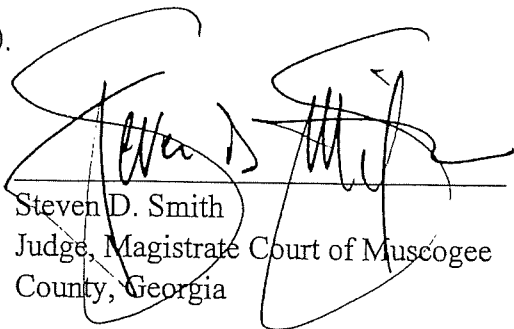 ).
Steven D. Smith
Steven D. Smith
Judge, Magistrate Court of Muscogee
County, Georgia